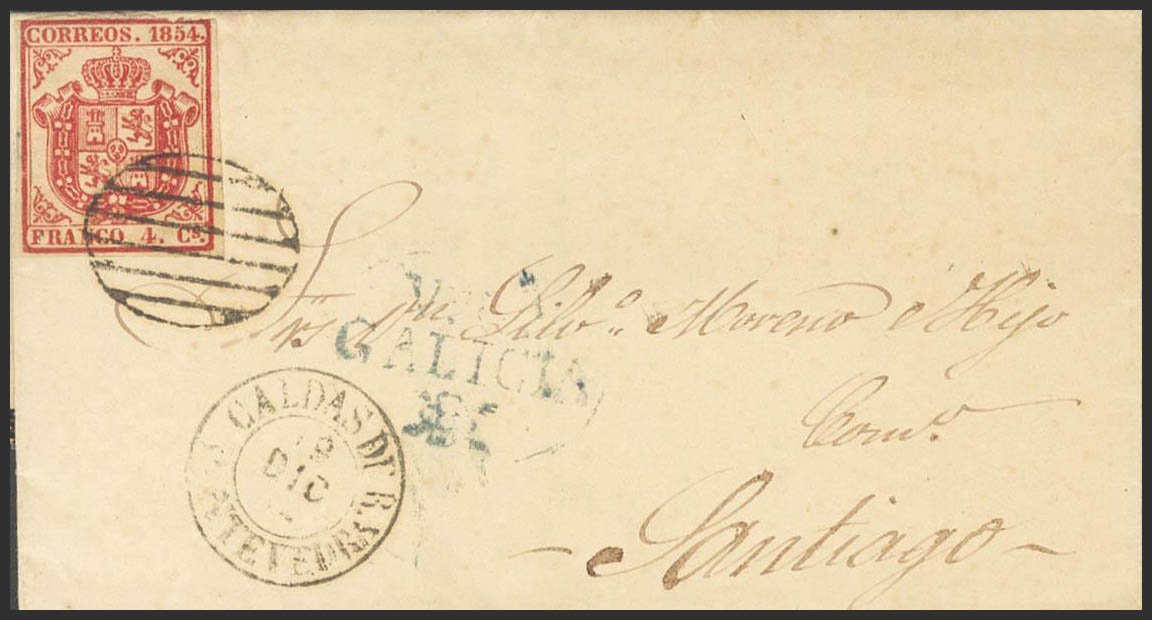 CORREOS. 1854.
FRANCO 4. Cs.
Srs Dn Silvo. Moreno é Hijo
GALICIA
CALDAS DE R.
DIC
PONTEVEDRA
Santiago